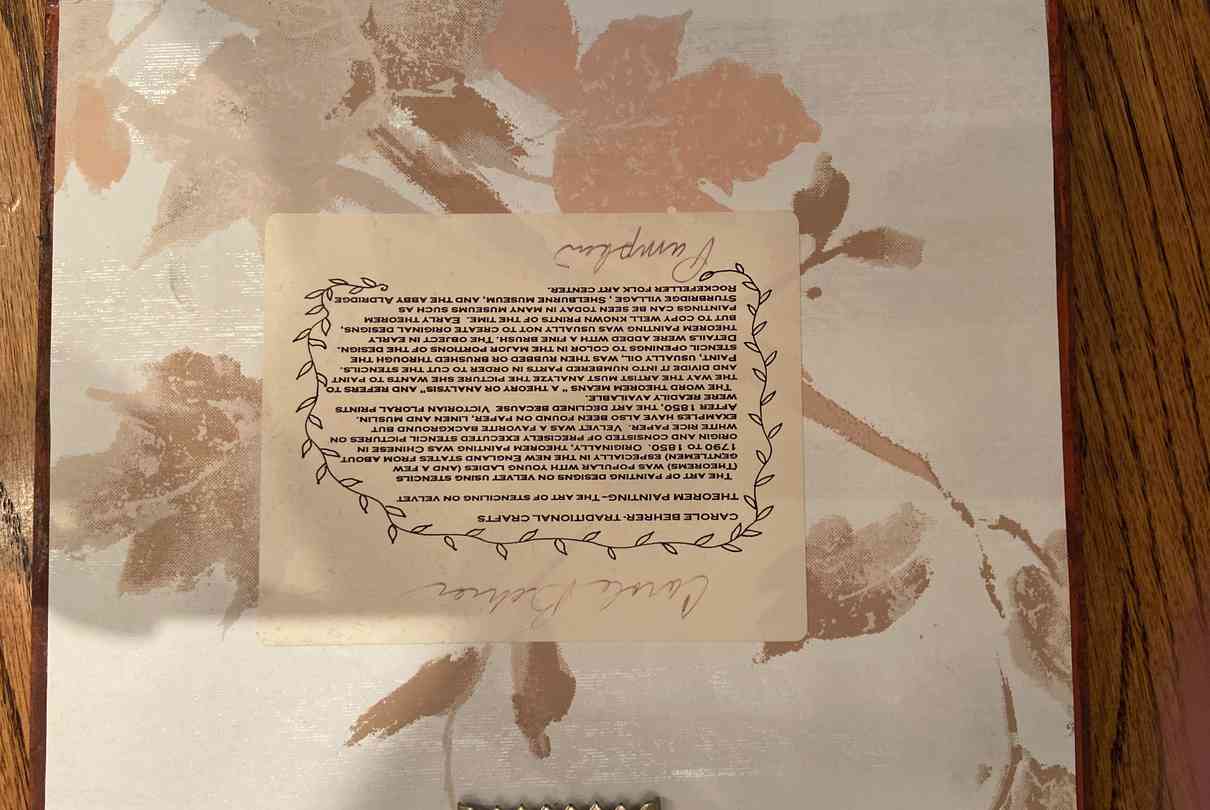 Carole Behrer
CAROLE BEHRER-TRADITIONAL CRAFTS
THEOREM PAINTING--THE ART OF STENCILING ON VELVET
THE ART OF PAINTING DESIGNS ON VELVET USING STENCILS
(THEOREMS) WAS POPULAR WITH YOUNG LADIES (AND A FEW
GENTLEMEN) ESPECIALLY IN THE NEW ENGLAND STATES FROM ABOUT
1790 TO 1850. ORIGINALLY, THEOREM PAINTING WAS CHINESE IN
ORIGIN AND CONSISTED OF PRECISELY EXECUTED STENCIL PICTURES ON
WHITE RICE PAPER. VELVET WAS A FAVORITE BACKGROUND BUT
EXAMPLES HAVE ALSO BEEN FOUND ON PAPER, LINEN AND MUSLIN.
AFTER 1850, THE ART DECLINED BECAUSE VICTORIAN FLORAL PRINTS
WERE READILY AVAILABLE.
THE WORD THEOREM MEANS " A THEORY OR ANALYSIS" AND REFERS TO
THE WAY THE ARTIST MUST ANALYZE THE PICTURE SHE WANTS TO PAINT
AND DIVIDE IT INTO NUMBERED PARTS IN ORDER TO CUT THE STENCILS.
PAINT, USUALLY OIL, WAS THEN RUBBED OR BRUSHED THROUGH THE
STENCIL OPENINGS TO COLOR IN THE MAJOR PORTIONS OF THE DESIGN.
DETAILS WERE ADDED WITH A FINE BRUSH. THE OBJECT IN EARLY
THEOREM PAINTING WAS USUALLY NOT TO CREATE ORIGINAL DESIGNS,
BUT TO COPY WELL KNOWN PRINTS OF THE TIME. EARLY THEOREM
PAINTINGS CAN BE SEEN TODAY IN MANY MUSEUMS SUCH AS
STURBRIDGE VILLAGE , SHELBURNE MUSEUM, AND THE ABBY ALDRIDGE
ROCKEFELLER FOLK ART CENTER.
Pumpkin